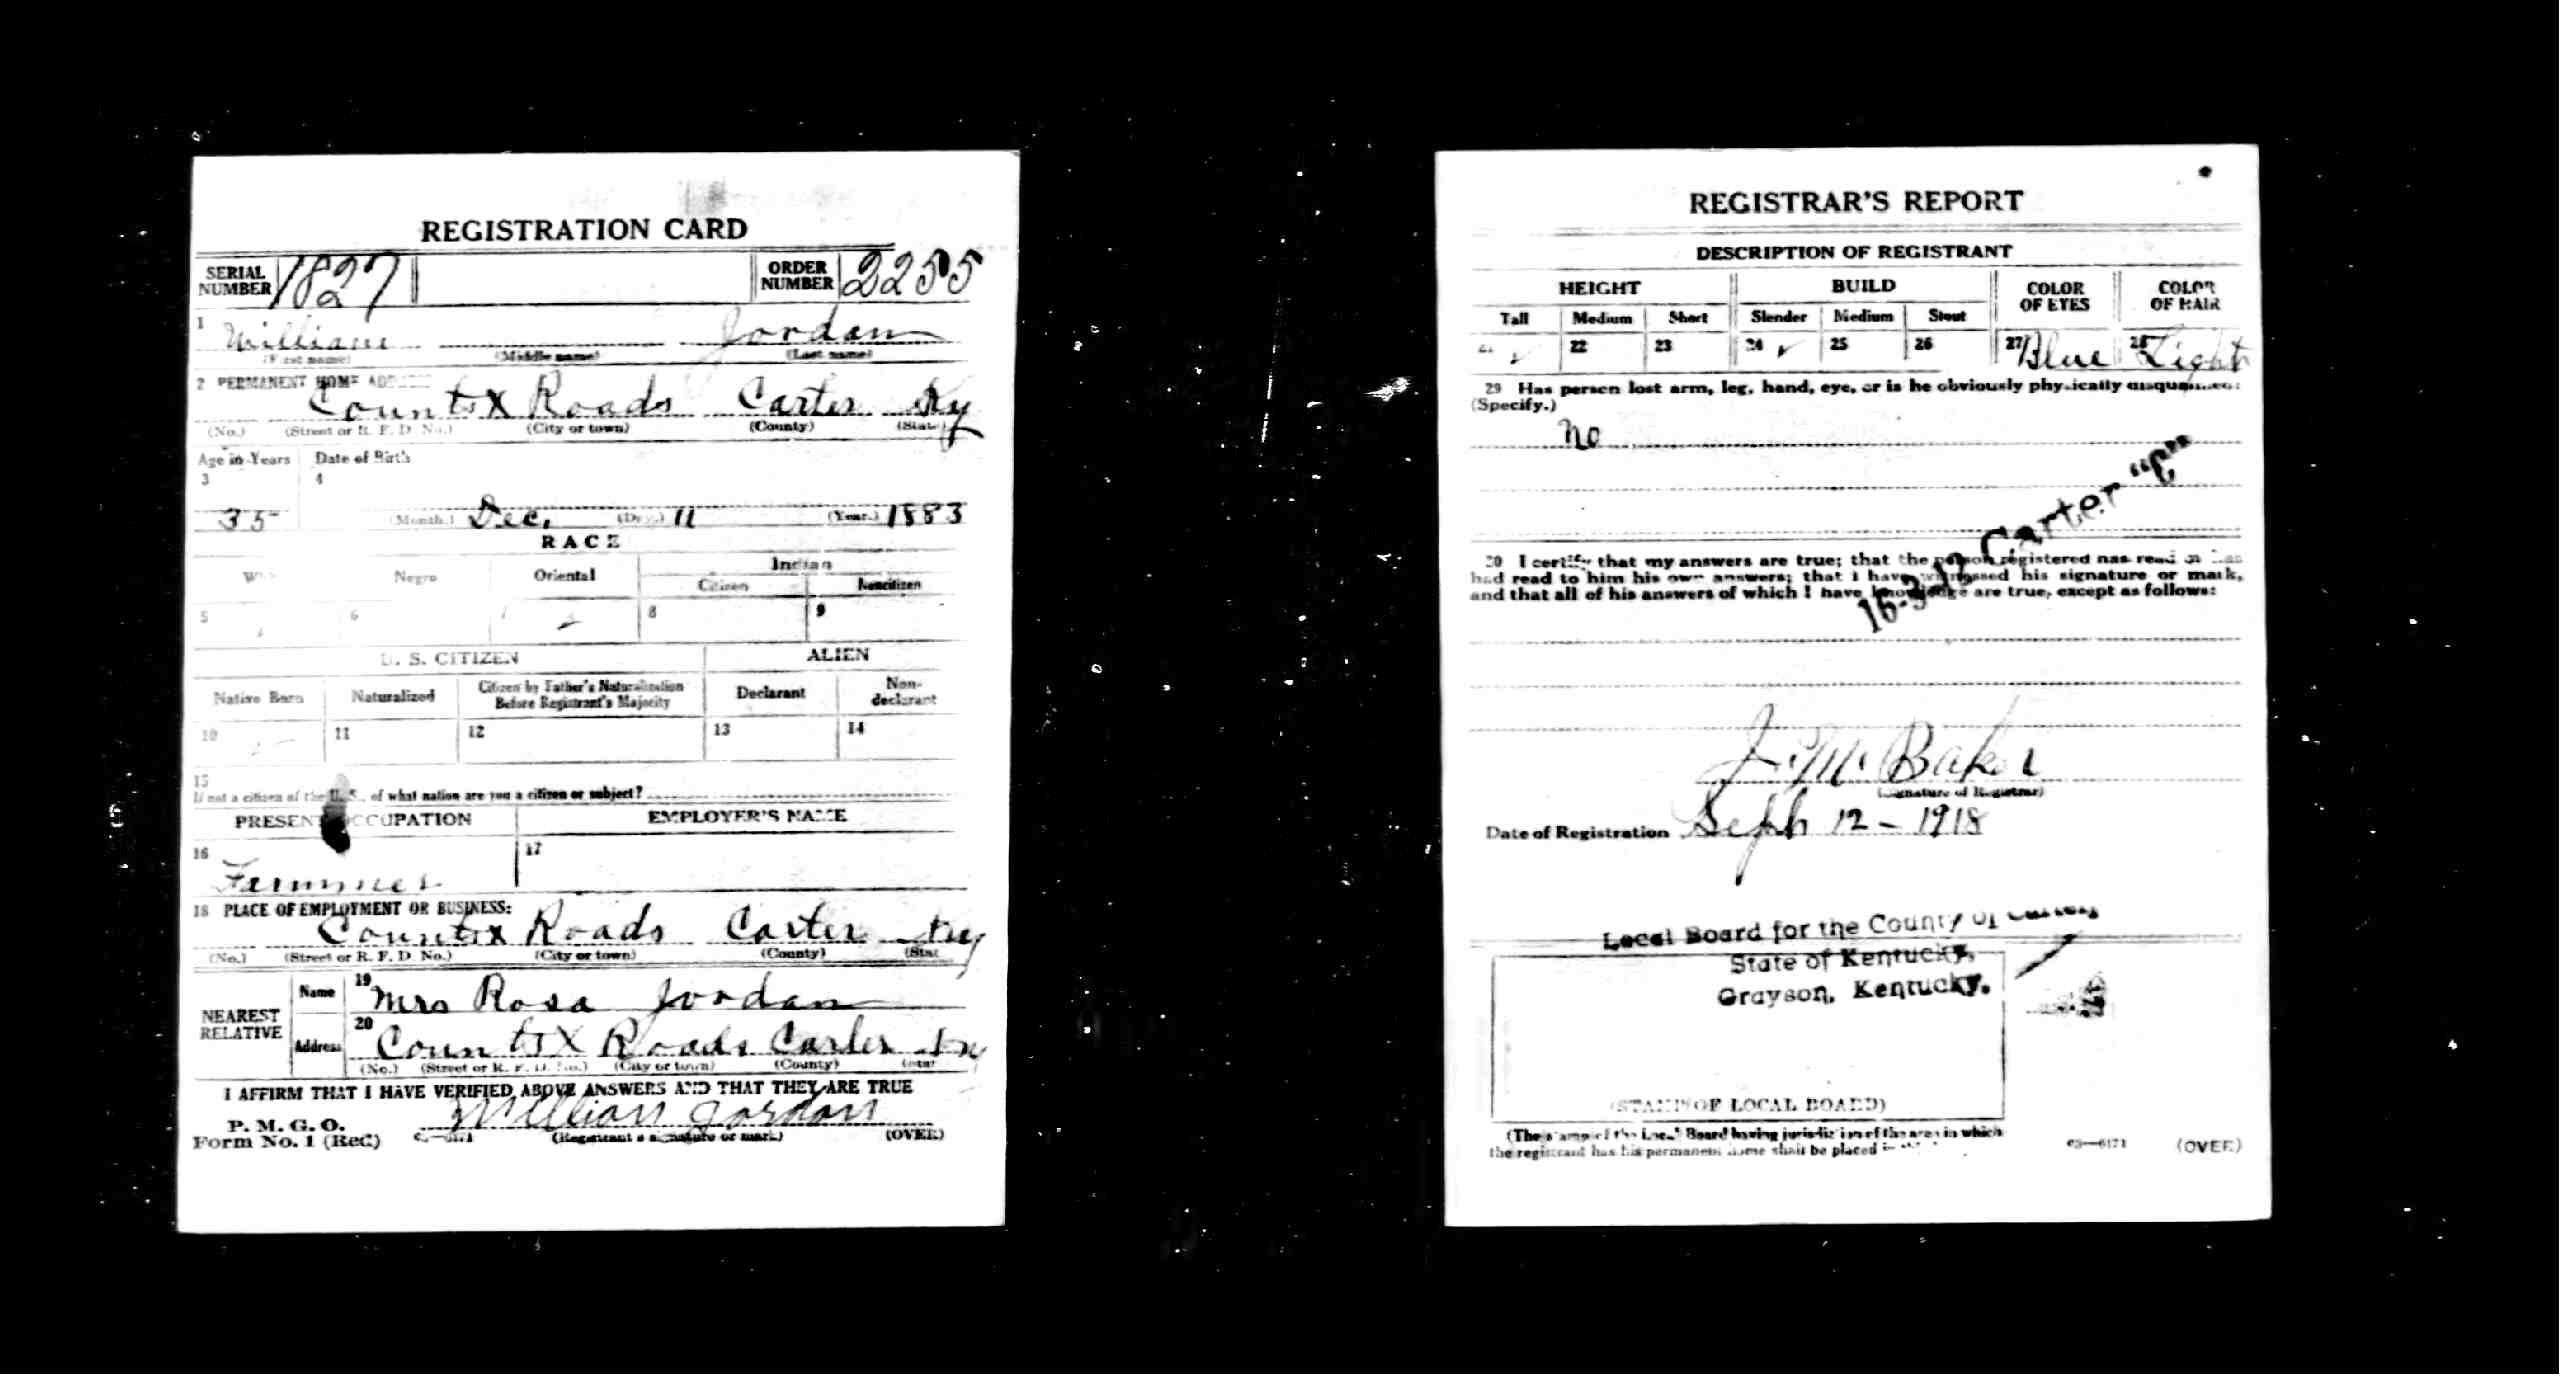 REGISTRATION CARD
SERIAL NUMBER 1827 ORDER NUMBER 2255
1 William Jordan
(First name) (Middle name) (Last name)
2 PERMANENT HOME ADDRESS
Countx Roads Carter Ky
(No.) (Street or R. F. D. No.) (City or town) (County) (State)
Age in Years Date of Birth
3 4
35 (Month.) Dec. (Day.) 11 (Year.) 1883
RACE
Negro Oriental Indian
Citizen Noncitizen
5 6 7 8 9
U. S. CITIZEN ALIEN
Native Born Naturalized Citizen by Father's Naturalization Before Registrant's Majority Declarant Non-declarant
10 11 12 13 14
15
If not a citizen of the U. S., of what nation are you a citizen or subject?
PRESENT OCCUPATION EMPLOYER'S NAME
16 17
Farmmer
18 PLACE OF EMPLOYMENT OR BUSINESS:
Countx Roads Carter Ky
(No.) (Street or R. F. D. No.) (City or town) (County) (State
NEAREST RELATIVE
Name 19 Mrs Rosa Jordan
Address 20 Countx Roads Carter Ky
(No.) (Street or R. F. D. No.) (City or town) (County) (State
I AFFIRM THAT I HAVE VERIFIED ABOVE ANSWERS AND THAT THEY ARE TRUE
P. M. G. O.
Form No. 1 (Red) William Jordan
(Registrant's signature or mark) (OVER)
REGISTRAR'S REPORT
DESCRIPTION OF REGISTRANT
HEIGHT BUILD COLOR OF EYES COLOR OF HAIR
Tall Medium Short Slender Medium Stout
21 22 23 24 25 26 27 Blue 28 Light
29 Has person lost arm, leg, hand, eye, or is he obviously physically disqualified?
(Specify.)
no
16-3-12 Carter "C"
30 I certify that my answers are true; that the person registered has read or has
had read to him his own answers; that I have witnessed his signature or mark,
and that all of his answers of which I have knowledge are true, except as follows:
J. M. Baker
(Signature of Registrar)
Date of Registration Seph 12 - 1918
Local Board for the County of Carter,
State of Kentucky,
Grayson, Kentucky.
(STAMP OF LOCAL BOARD)
(The stamp of the Local Board having jurisdiction of the area in which
the registrant has his permanent home shall be placed in this
03—6171 (OVER)